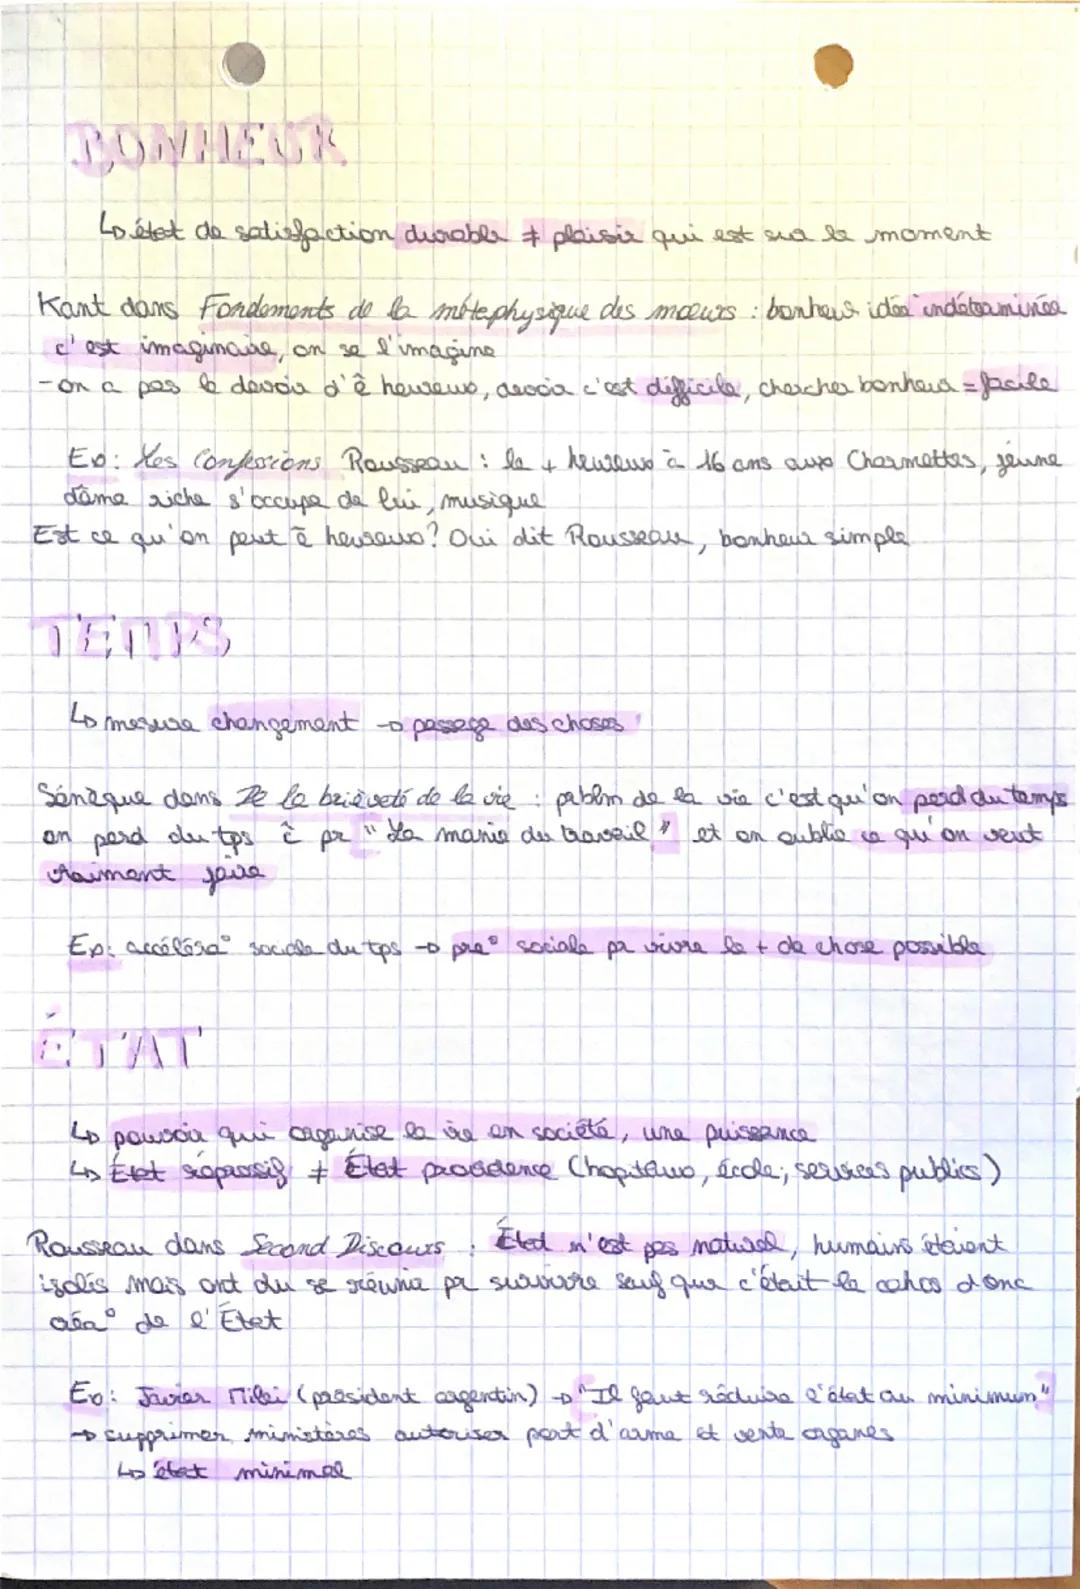 BONHEUR
↳ état de satisfaction durable ≠ plaisir qui est sur le moment
Kant dans Fondements de la métaphysique des mœurs : bonheur idée indéterminée
c'est imaginaire, on se l'imagine
- on a pas le devoir d'ê heureux, devoir c'est difficile, chercher bonheur = facile
Ex: Les Confessions Rousseau : le + heureux à 16 ans aux Charmettes, jeune
dame riche s'occupe de lui, musique
Est ce qu'on peut ê heureux? Oui dit Rousseau, bonheur simple
TEMPS
↳ mesure changement → passage des choses
Sénèque dans De la brièveté de la vie : pablm de la vie c'est qu'on perd du temps
on perd du tps ê pr "La manie du travail" et on oublie ce qu'on veut
vraiment faire
Ex: accéléra° sociale du tps → pre° sociale pr vivre le + de chose possible
ÉTAT
↳ pouvoir qui organise la vie en société, une puissance
↳ État répressif ≠ État providence (hopitaux, école, services publics)
Rousseau dans Second Discours : État n'est pas naturel, humains étaient
isolés mais ont du se réunir pr survivre sauf que c'était le cahos donc
créa° de l'État
Ex: Javier Milei (président argentin) → "Il faut réduire l'état au minimum"
→ supprimer ministères autoriser port d'arme et vente organes
↳ état minimal